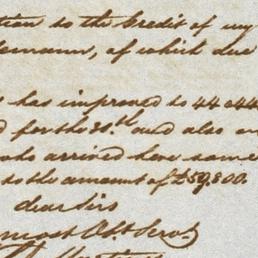 tion to the credit of my
lemann, of which due
has improved to 44 a 44
d for the 30.th and also
who arrived here some
to the amount of £59,800.
dear Sirs
most Obt Servt